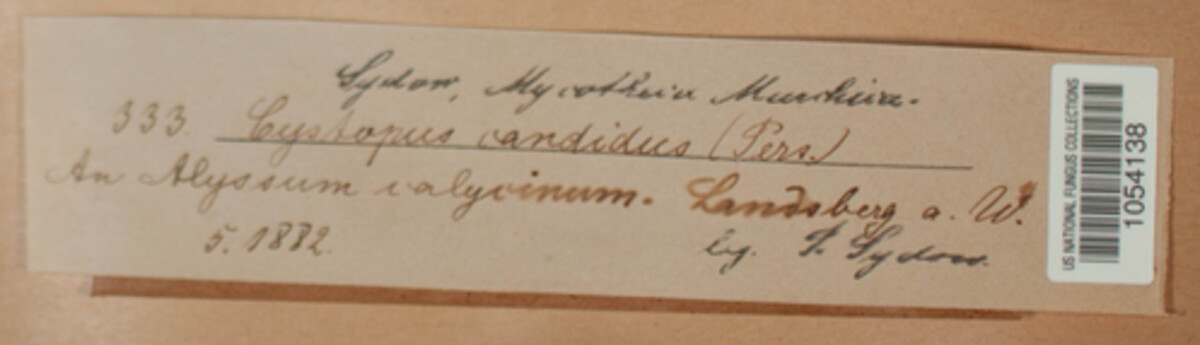 Sydow, Mycotheca Marchica.
333. Cystopus candidus (Pers.)
An Alyssum calycinum. Landsberg a. W.
5. 1882.
leg. P. Sydow.
US NATIONAL FUNGUS COLLECTIONS
1054138